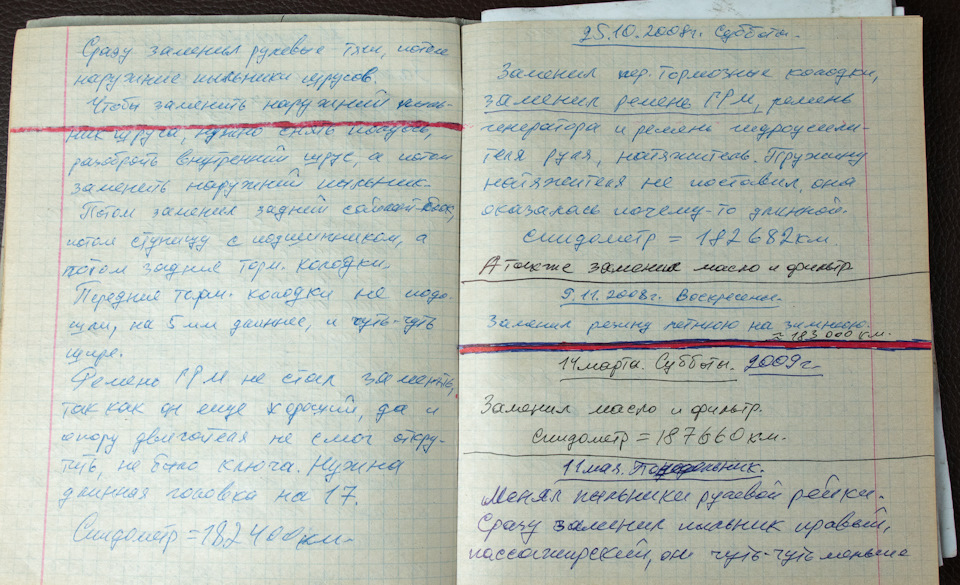 Сразу заменил рулевые тяги, потом
наружние пыльники шрусов.
Чтобы заменить наружний пыль-
ник шруса, нужно снять полуось,
разобрать внутренний шрус, а потом
заменить наружний пыльник.
Потом заменил задний сайлент-блок,
потом ступицу с подшипником, а
потом задние торм. колодки.
Передние торм. колодки не подо-
шли, на 5 мм длиннее, и чуть-чуть
шире.
Ремень ГРМ не стал заменять,
так как он еще хороший, да и
опору двигателя не смог откру-
тить, не было ключа. Нужна
длинная головка на 17.
Спидометр = 182400км.
25.10.2008г. Суббота.
Заменил пер. тормозные колодки,
заменил ремень ГРМ, ремень
генератора и ремень гидроусили-
теля руля, натяжитель. Пружину
натяжителя не поставил, она
оказалась почему-то длинной.
Спидометр = 182682км.
А также заменил масло и фильтр
9.11.2008г. Воскресенье.
Заменил резину летнюю на зимнюю.
≈ 183000 км.
14 марта. Суббота. 2009г.
Заменил масло и фильтр.
Спидометр = 187660 км.
11 мая. Понедельник.
Менял пыльники рулевой рейки.
Сразу заменил пыльник правый,
пассажирский, он чуть-чуть меньше